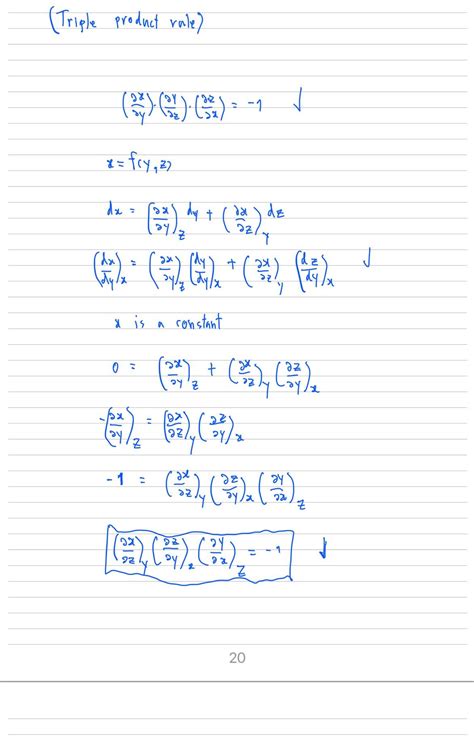 (Triple product rule)
(∂x/∂y)·(∂y/∂z)·(∂z/∂x) = -1 ✓
x = f(y, z)
dx = (∂x/∂y)_z dy + (∂x/∂z)_y dz
(dx/dy)_x = (∂x/∂y)_z (dy/dy)_x + (∂x/∂z)_y (dz/dy)_x ✓
x is a constant
0 = (∂x/∂y)_z + (∂x/∂z)_y (∂z/∂y)_x
-(∂x/∂y)_z = (∂x/∂z)_y (∂z/∂y)_x
-1 = (∂x/∂z)_y (∂z/∂y)_x (∂y/∂x)_z
(∂x/∂z)_y (∂z/∂y)_x (∂y/∂x)_z = -1 ✓
20